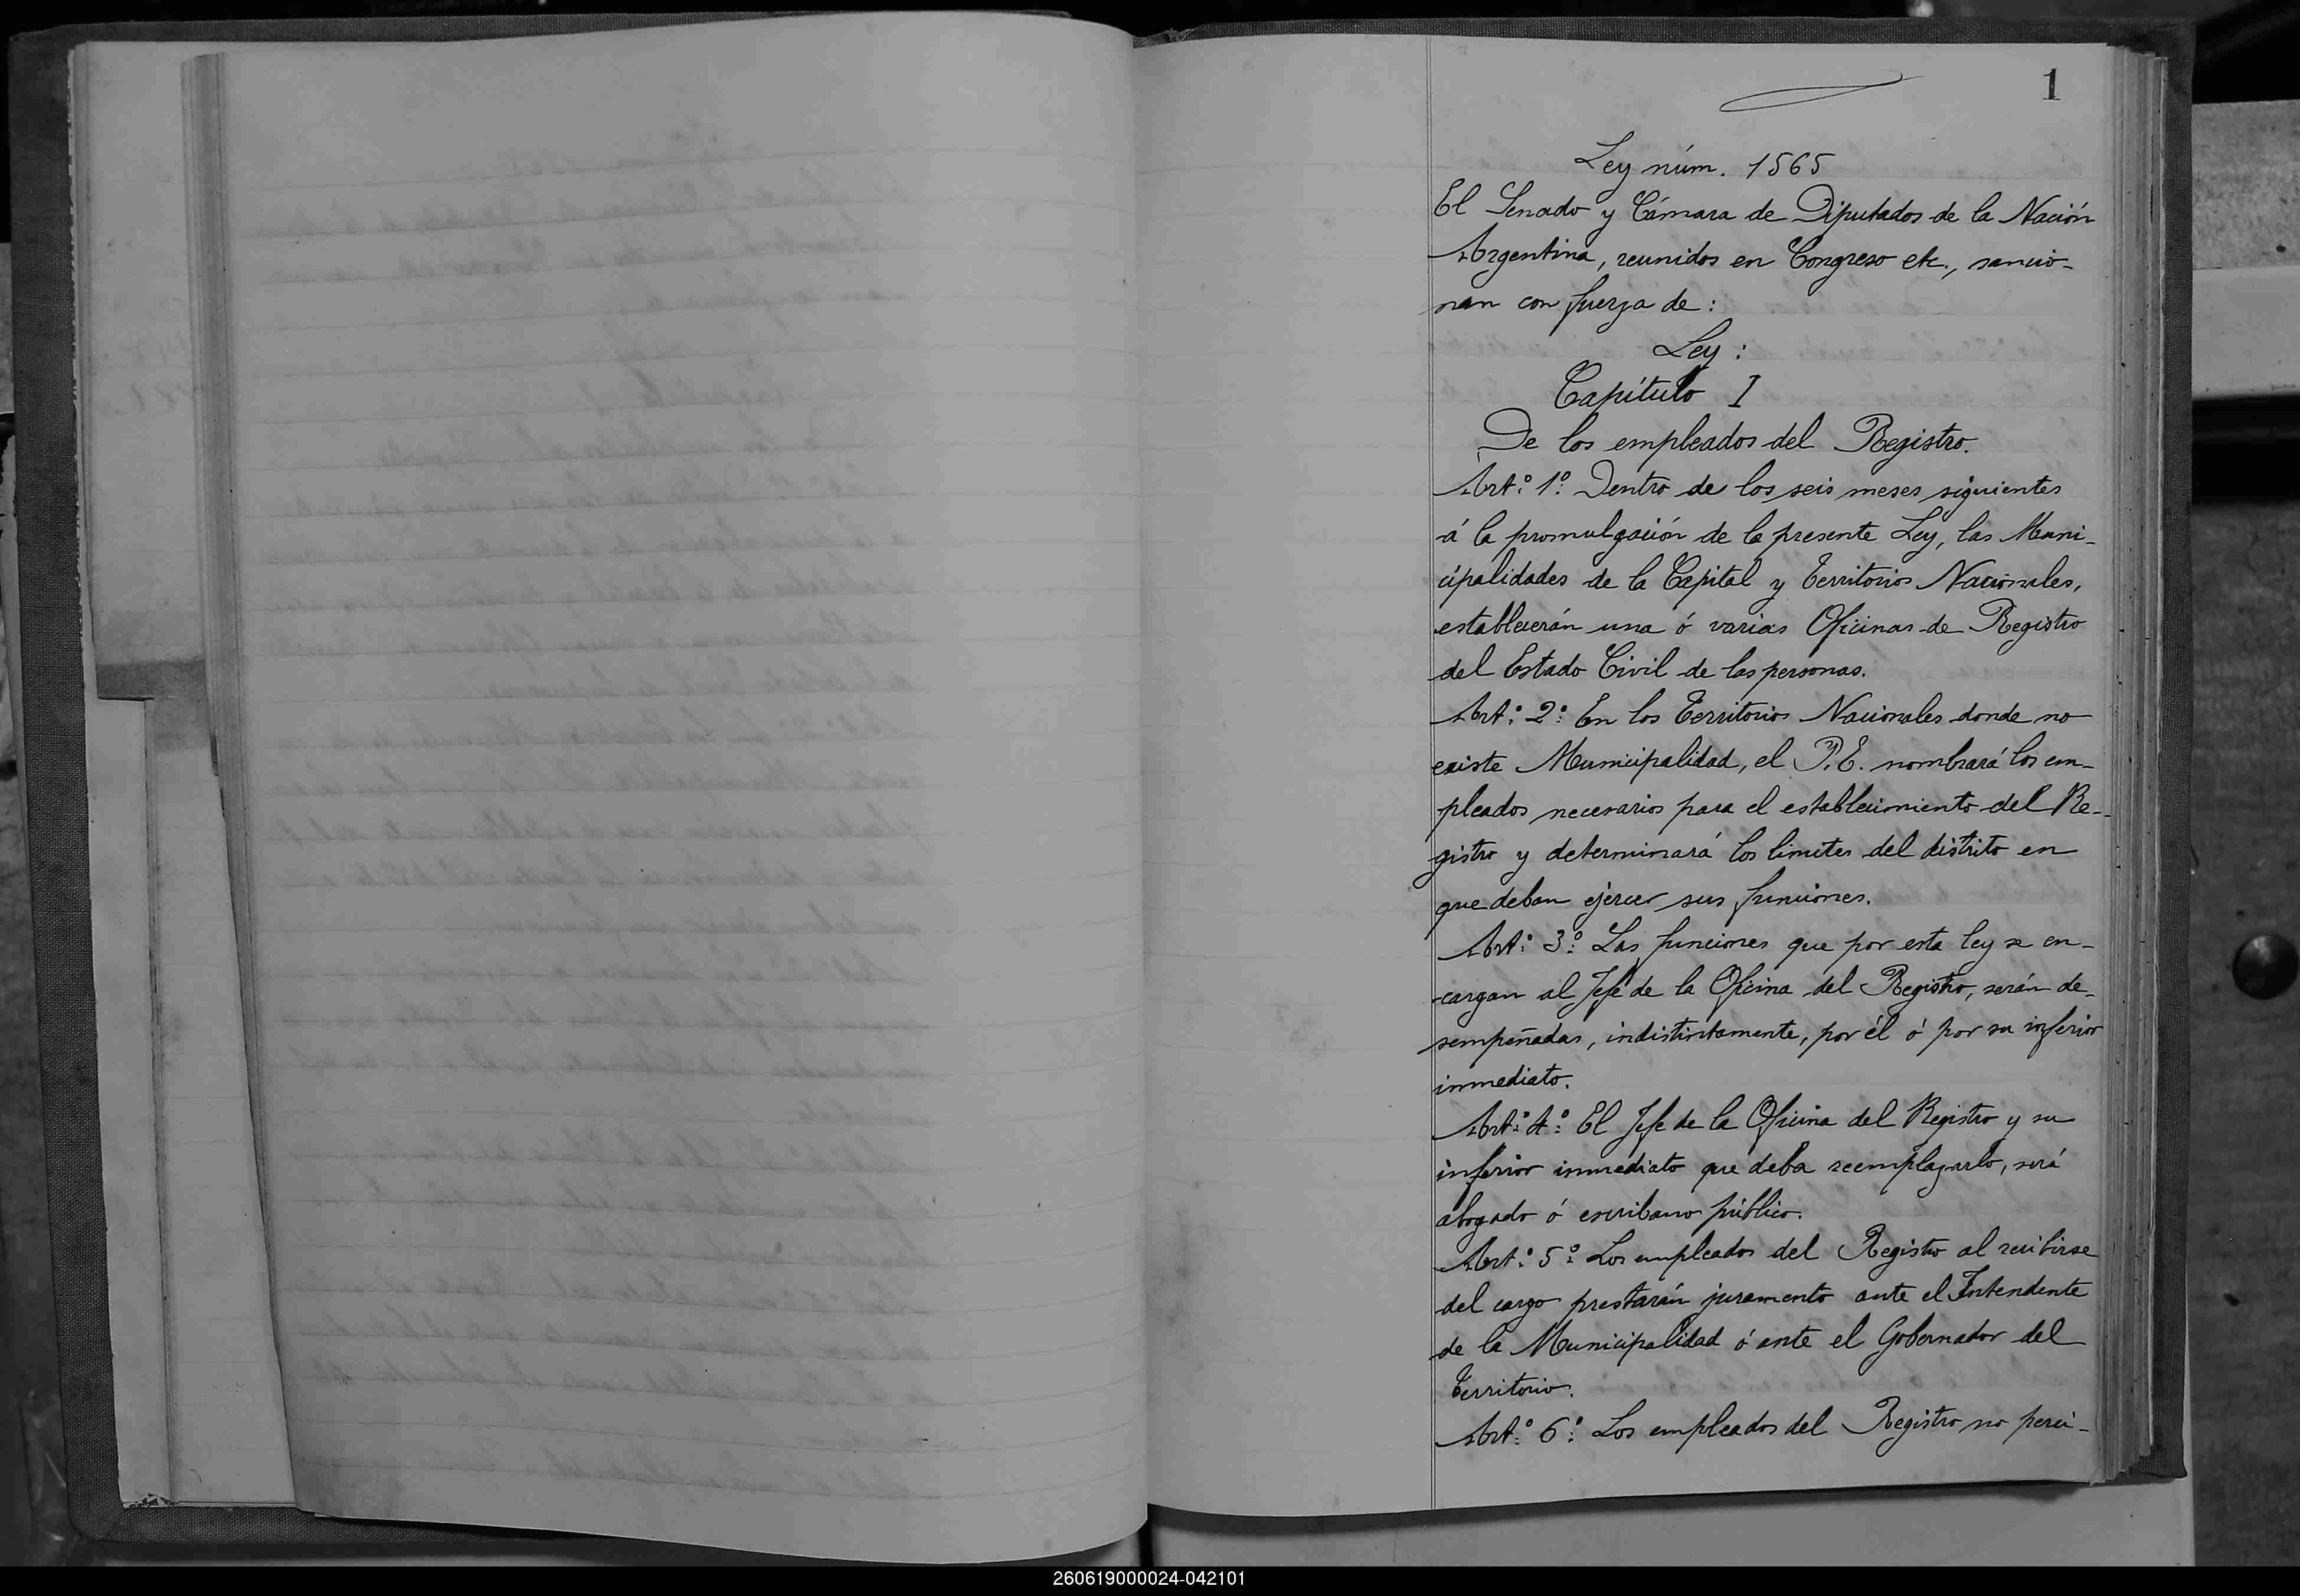 1
Ley núm. 1565
El Senado y Cámara de Diputados de la Nación
Argentina, reunidos en Congreso etc., sancio-
nan con fuerza de:
Ley:
Capítulo I
De los empleados del Registro.
Art.º 1.º Dentro de los seis meses siguientes
á la promulgación de la presente Ley, las Muni-
cipalidades de la Capital y Territorios Nacionales,
establecerán una ó varias Oficinas de Registro
del Estado Civil de las personas.
Art.º 2.º En los Territorios Nacionales donde no
existe Municipalidad, el P.E. nombrará los em-
pleados necesarios para el establecimiento del Re-
gistro y determinará los limites del distrito en
que deban ejercer sus funciones.
Art.º 3.º Las funciones que por esta ley se en-
cargan al Jefe de la Oficina del Registro, serán de-
sempeñadas, indistintamente, por él ó por su inferior
inmediato.
Art.º 4.º El Jefe de la Oficina del Registro y su
inferior inmediato que deba reemplazarlo, será
abogado ó escribano público.
Art.º 5.º Los empleados del Registro al recibirse
del cargo prestarán juramento ante el Intendente
de la Municipalidad ó ante el Gobernador del
Territorio.
Art.º 6.º Los empleados del Registro no perci-
260619000024-042101